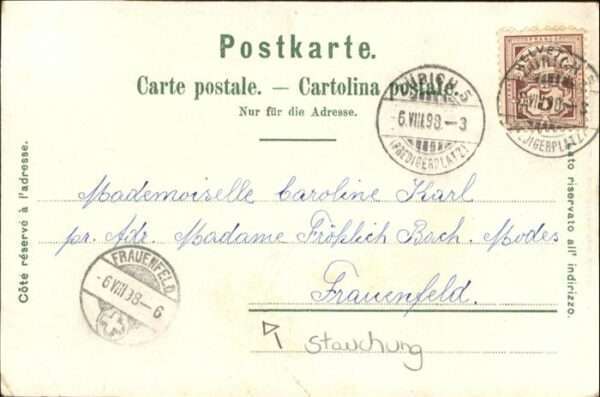 Postkarte.
Carte postale. — Cartolina postale.
Nur für die Adresse.
ZÜRICH 5
-6.VIII.98.-3
(PREDIGERPLATZ)
HELVETIA
5
Mademoiselle Caroline Karl
pr. Adr. Madame Fröhlich Bach. Modes
Frauenfeld.
FRAUENFELD
-6 VIII 98-6
Stauchung
Côté réservé à l'adresse.
riservato all' indirizzo.